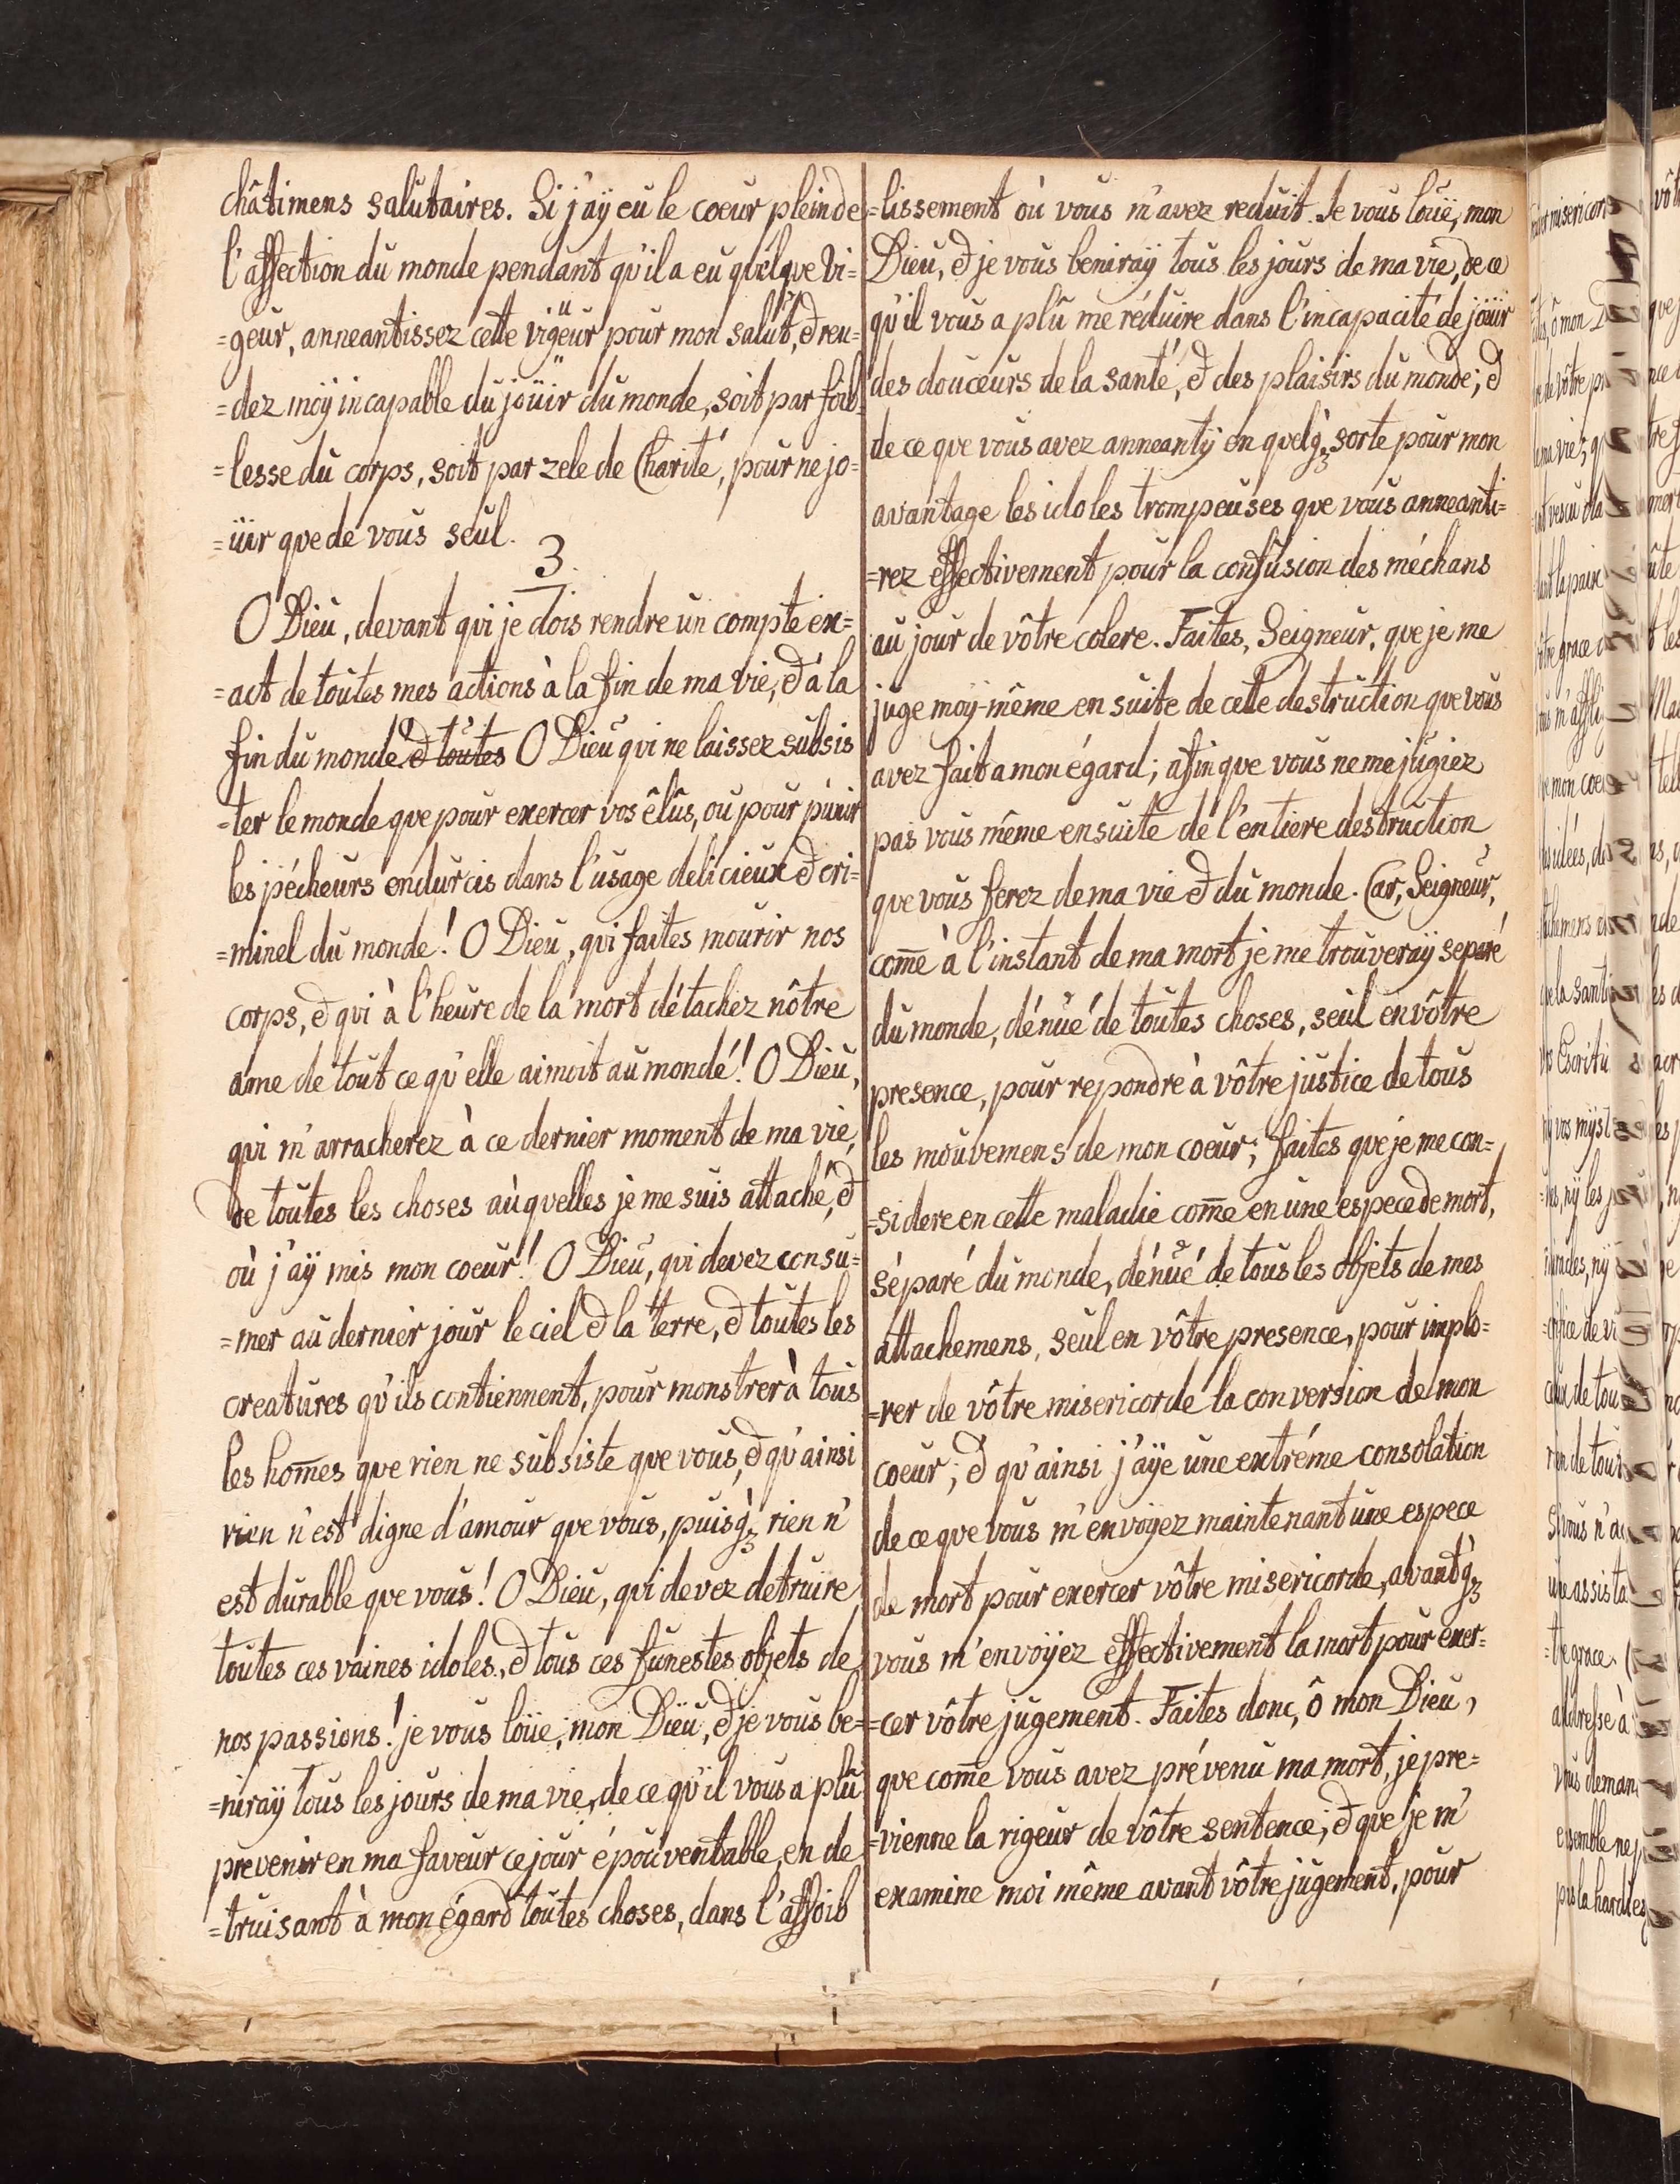 châtimens salutaires. Si j'aÿ eu le coeur plein de
l'affection du monde pendant qu'il a eu quelque vi=
=geur, anneantissez cette vigeur pour mon salut, & ren=
=dez moÿ incapable du joüir du monde, soit par foib
=lesse du corps, soit par zele de Charité, pour ne jo=
=üir que de vous seul.
3.
O Dieu, devant qui je dois rendre un compte ex=
=act de toutes mes actions à la fin de ma vie, & à la
fin du monde. & toutes O Dieu qui ne laissez subsis
=ter le monde que pour exercer vos êlûs, ou pour punir
les pécheurs endurcis dans l'usage delicieux & cri=
=minel du monde! O Dieu, qui faites mourir nos
corps, & qui à l'heure de la mort détachez nôtre
ame de tout ce qu'elle aimoit au monde! O Dieu,
qui m'arracherez à ce dernier moment de ma vie,
de toutes les choses auquelles je me suis attaché, &
où j'aÿ mis mon coeur! O Dieu, qui devez consu=
=mer au dernier jour le ciel & la terre, & toutes les
creatures qu'ils contiennent, pour monstrer à tous
les hom̄es que rien ne subsiste que vous, & qu'ainsi
rien n'est digne d'amour que vous, puisq̀ꝫ rien n'
est durable que vous! O Dieu, qui devez detruire
toutes ces vaines idoles, & tous ces funestes objets de
nos passions! je vous loüe, mon Dieu, & je vous be=
=niraÿ tous les jours de ma vie, de ce qu'il vous a plû
prevenir en ma faveur ce jour épouventable, en de
=truisant à mon égard toutes choses, dans l'affoib
=lissement où vous m'avez reduit. Je vous loüe, mon
Dieu, & je vous beniraÿ tous les jours de ma vie, de ce
qu'il vous a plû me réduire dans l'incapacité de joüir
des douceurs de la santé, & des plaisirs du monde; &
de ce que vous avez anneantÿ en quelq̀ꝫ sorte pour mon
avantage les idoles trompeuses que vous anneanti=
=rez effectivement pour la confusion des méchans
au jour de vôtre colere. Faites, Seigneur, que je me
juge moÿ-même en suite de cette destruction que vous
avez fait a mon égard; afin que vous ne me jugiez
pas vous même ensuite de l'entiere destruction
que vous ferez de ma vie & du monde. Car, Seigneur,
com̄e à l'instant de ma mort je me trouveraÿ separé
du monde, dénué de toutes choses, seul en vôtre
presence, pour repondre à vôtre justice de tous
les mouvemens de mon coeur; faites que je me con=
=sidere en cette maladie com̄e en une espece de mort,
séparé du monde, dénué de tous les objets de mes
attachemens, seul en vôtre presence, pour implo=
=rer de vôtre misericorde la conversion de mon
coeur; & qu'ainsi j'aÿe une extréme consolation
de ce que vous m'envoÿez maintenant une espece
de mort pour exercer vôtre misericorde, avant q̀ꝫ
vous m'envoÿez effectivement la mort pour exer=
=cer vôtre jugement. Faites donc, ô mon Dieu,
que com̄e vous avez prévenu ma mort, je pre=
=vienne la rigeur de vôtre sentence; & que je m'
examine moi même avant vôtre jugement, pour